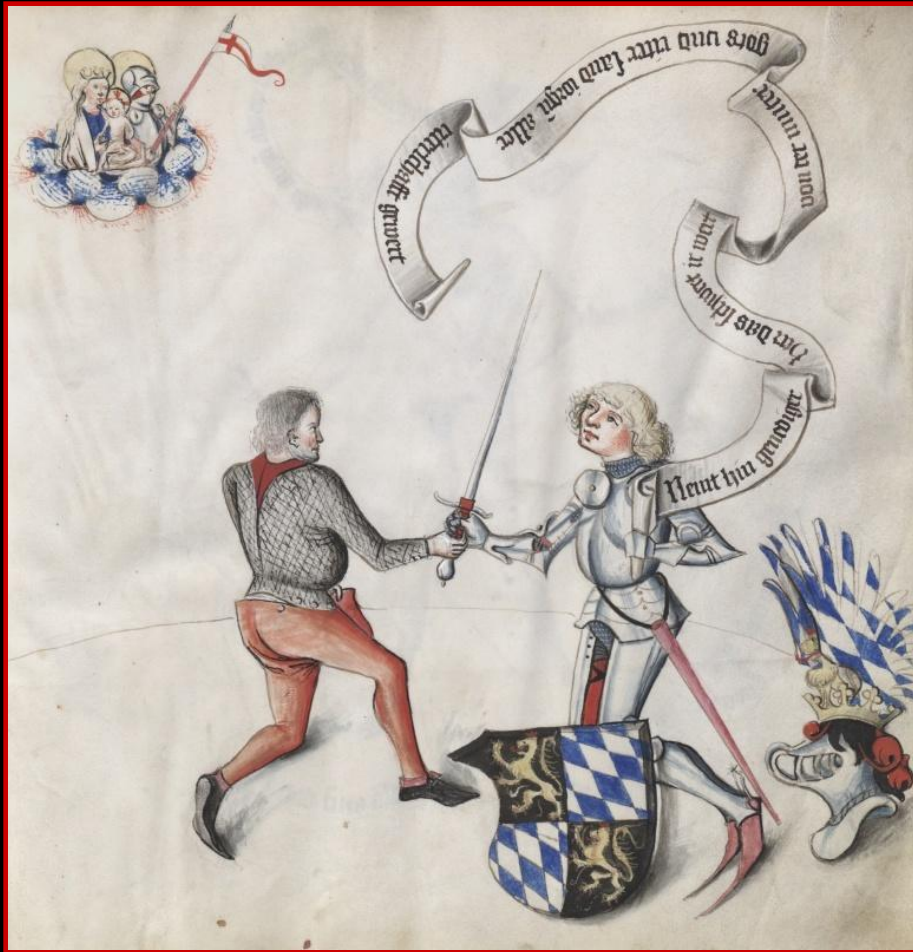 Nemt hin genediger
her das schwert ir wert
von der mutter
gots vnd riter sand iorgn aller
riterschafft gewert